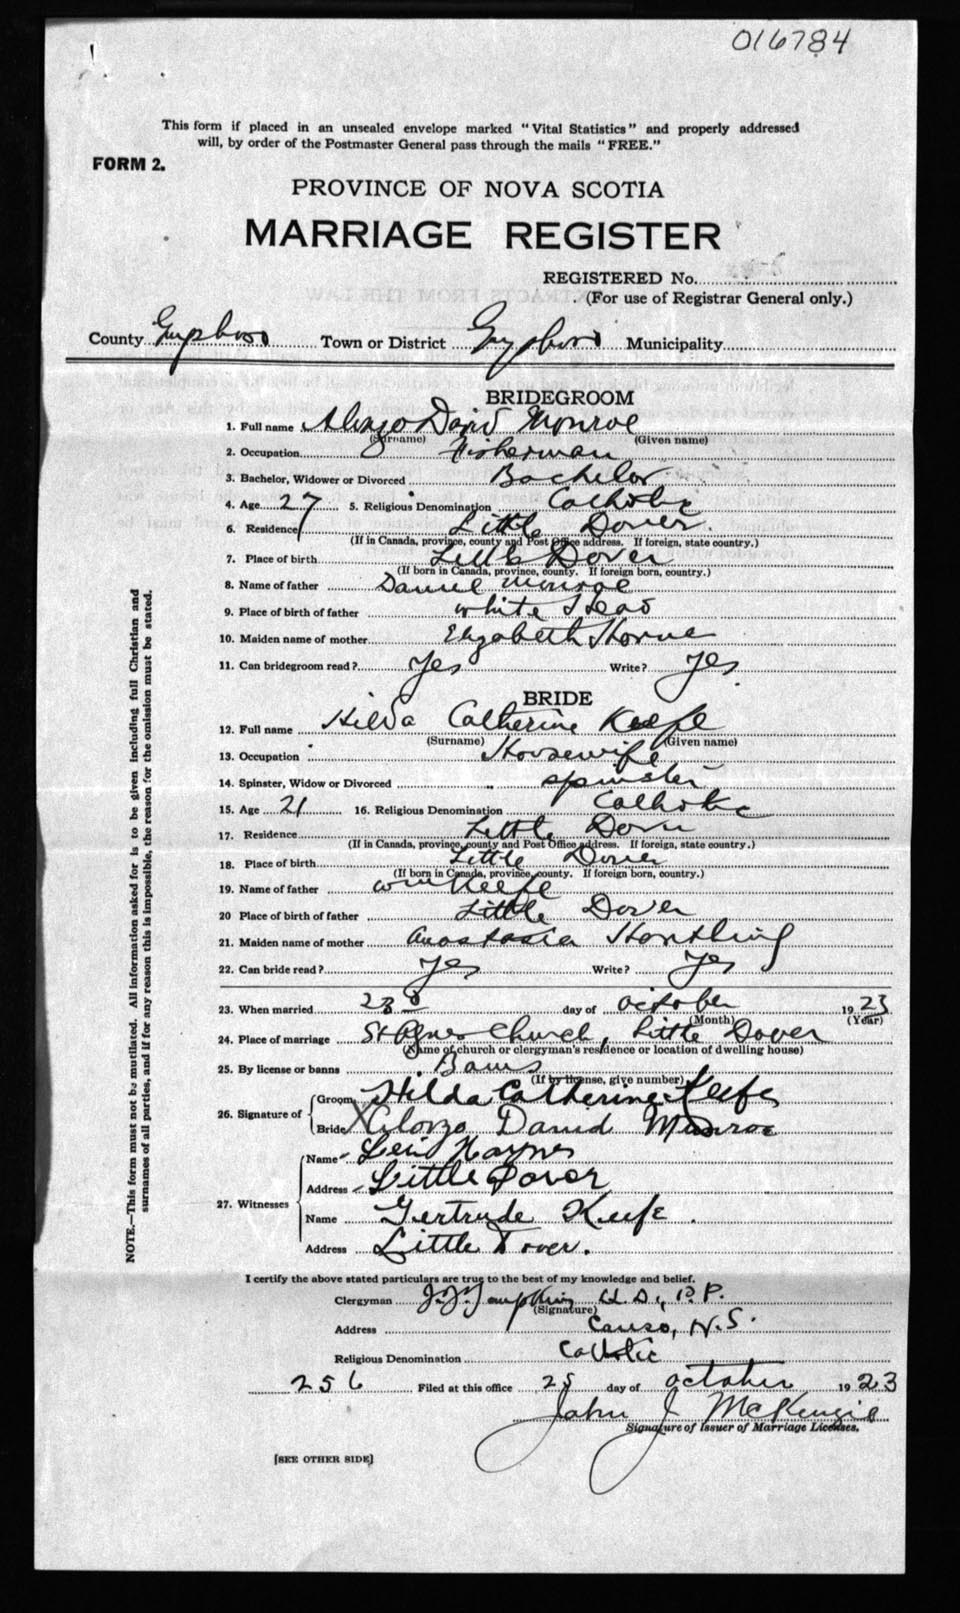 016784
This form if placed in an unsealed envelope marked "Vital Statistics" and properly addressed
will, by order of the Postmaster General pass through the mails "FREE."
FORM 2.
PROVINCE OF NOVA SCOTIA
MARRIAGE REGISTER
REGISTERED No.
(For use of Registrar General only.)
County Guysboro Town or District Guysboro Municipality
BRIDEGROOM
1. Full name Alonzo David Monroe
(Surname) (Given name)
2. Occupation Fisherman
3. Bachelor, Widower or Divorced Bachelor
4. Age 27 5. Religious Denomination Catholic
6. Residence Little Dover
(If in Canada, province, county and Post Office address. If foreign, state country.)
7. Place of birth Little Dover
(If born in Canada, province, county. If foreign born, country.)
8. Name of father Daniel Monroe
9. Place of birth of father White Head
10. Maiden name of mother Elizabeth Horne
11. Can bridegroom read? Yes Write? Yes
BRIDE
12. Full name Hilda Catherine Keefe
(Surname) (Given name)
13. Occupation Housewife
14. Spinster, Widow or Divorced spinster
15. Age 21 16. Religious Denomination Catholic
17. Residence Little Dover
(If in Canada, province, county and Post Office address. If foreign, state country.)
18. Place of birth Little Dover
(If born in Canada, province, county. If foreign born, country.)
19. Name of father Wm Keefe
20 Place of birth of father Little Dover
21. Maiden name of mother Anastasia
22. Can bride read? Yes Write? Yes
23. When married 23d day of October 1923
(Month) (Year)
24. Place of marriage St Agnes Church, Little Dover
(Name of church or clergyman's residence or location of dwelling house)
25. By license or banns Banns
(If by license, give number)
26. Signature of Groom Hilda Catherine Keefe
Bride X Alonzo David Munroe
27. Witnesses Name Levi Haynes
Address Little Dover
Name Gertrude Keefe.
Address Little Dover.
I certify the above stated particulars are true to the best of my knowledge and belief.
Clergyman J.J. Tompkins P.P.
(Signature)
Address Canso, N.S.
Religious Denomination Catholic
256 Filed at this office 25 day of October 1923
John J McKenzie
Signature of Issuer of Marriage Licenses.
[SEE OTHER SIDE]
NOTE.—This form must not be mutilated. All information asked for is to be given including full Christian and
surnames of all parties, and if for any reason this is impossible, the reason for the omission must be stated.